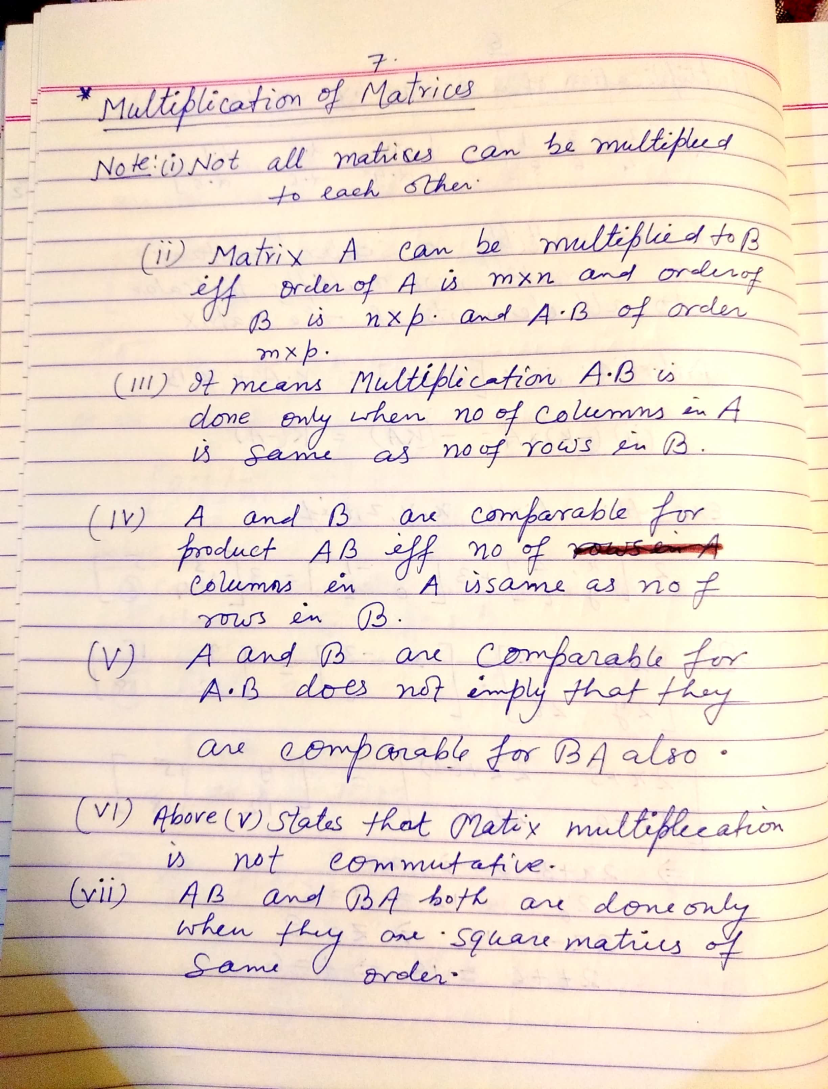 7.
* Multiplication of Matrices
Note:(i) Not all matrises can be multiplied
to each other.
(ii) Matrix A can be multiplied to B
iff order of A is m×n and order of
B is n×p. and A·B of order
m×p.
(iii) It means Multiplication A·B is
done only when no of Columns in A
is same as no of rows in B.
(iv) A and B are comparable for
product AB iff no of rows in A
columns in A is same as no f
rows in B.
(V) A and B are Comparable for
A·B does not imply that they
are comparable for BA also.
(vi) Above (v) states that Matix multiplication
is not commutative.
(vii) AB and BA both are done only
when they are square matries of
Same order.